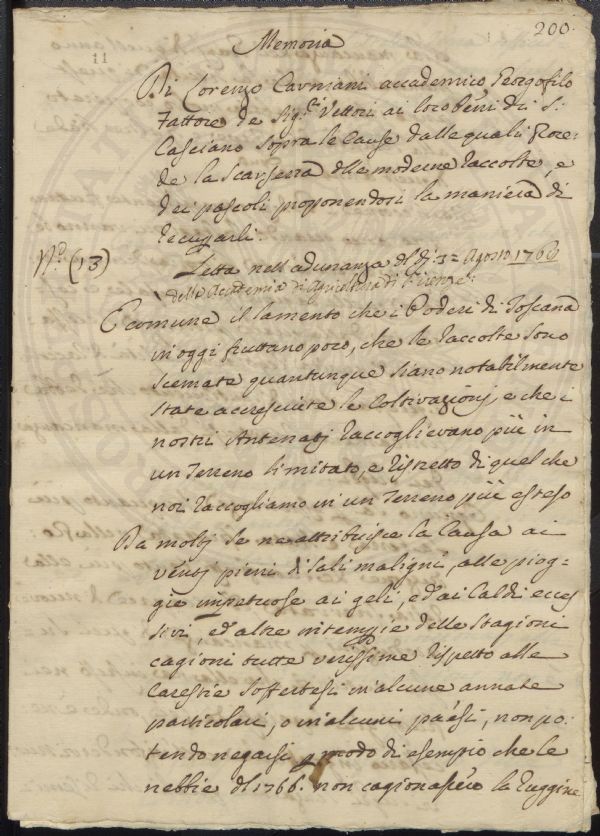 200.
Memoria
11
Di Lorenzo Cavniani accademico Georgofilo
Fattore de Sig.ri Vettori ai loro beni di S.
Casciano sopra le Cause dalle quali proce=
de la scarsezza delle moderne raccolte, e
dei pascoli proponendosi la maniera di
recuparli.
N.o (13)
Letta nell'adunanza del dì 3 = Agosto 1768
della Accademia di Agricoltura di Firenze.
E comune il lamento che i Poderi di Toscana
in oggi fruttano poco, che le raccolte sono
scemate quantunque siano notabilmente
state accresciute le Coltivazionj, e che i
nostri Antenatj raccoglievano più in
un Terreno limitato, e ristretto di quel che
noi raccogliamo in un Terreno più esteso
Da moltj se ne attribuisce la Causa ai
ventj pieni di sali maligni, alle piog=
gie impetuose ai geli, ed ai Caldi eces
sivi, ed altre intemperie delle stagioni
cagioni tutte verissime rispetto alle
Carestie soffertesi in alcune annate
particolari, o in alcuni paesi, non po:
tendo negarsi p modo di esempio che le
nebbie del 1766. non cagionassero la ruggine